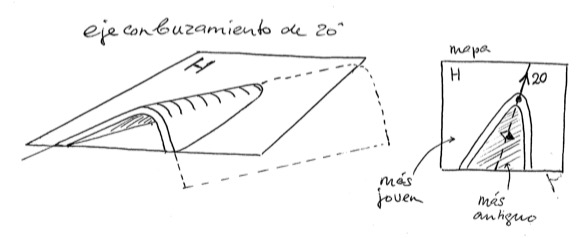 eje con buzamiento de 20°
H
mapa
H
20
más
joven
más
antiguo